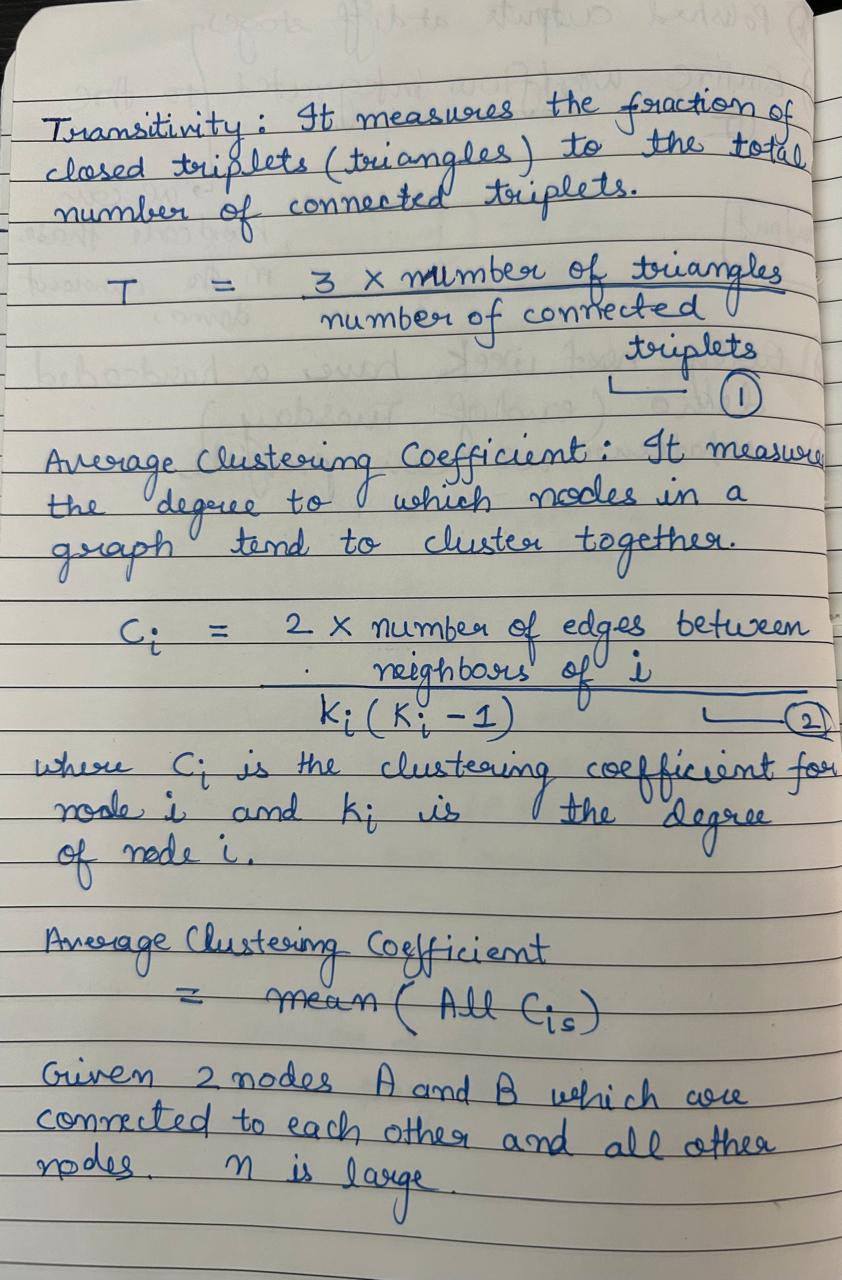 Transitivity: It measures the fraction of
closed triplets (triangles) to the total
number of connected triplets.
T = 3 x number of triangles
number of connected
triplets
1
Average Clustering Coefficient: It measure
the degree to which nodes in a
graph tend to cluster together.
Ci = 2 x number of edges between
neighbors of i
Ki (Ki - 1)
2
where Ci is the clustering coefficient for
node i and Ki is the degree
of node i.
Average Clustering Coefficient
= mean (All Cis)
Given 2 nodes A and B which are
connected to each other and all other
nodes. n is large.